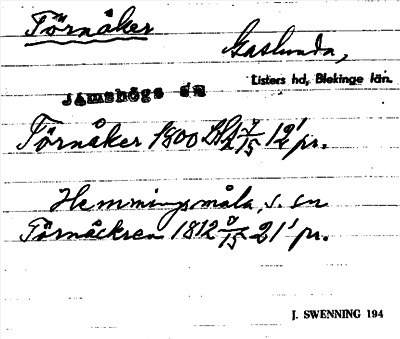 Törnåker
Gaslunda,
Listers hd, Blekinge län.
JAMSHÖGS SN
Törnåker 1800 12' pr.
Hemmingsmåla, s. sn
Törnåckren 1812 21' pr.
J. SWENNING 194